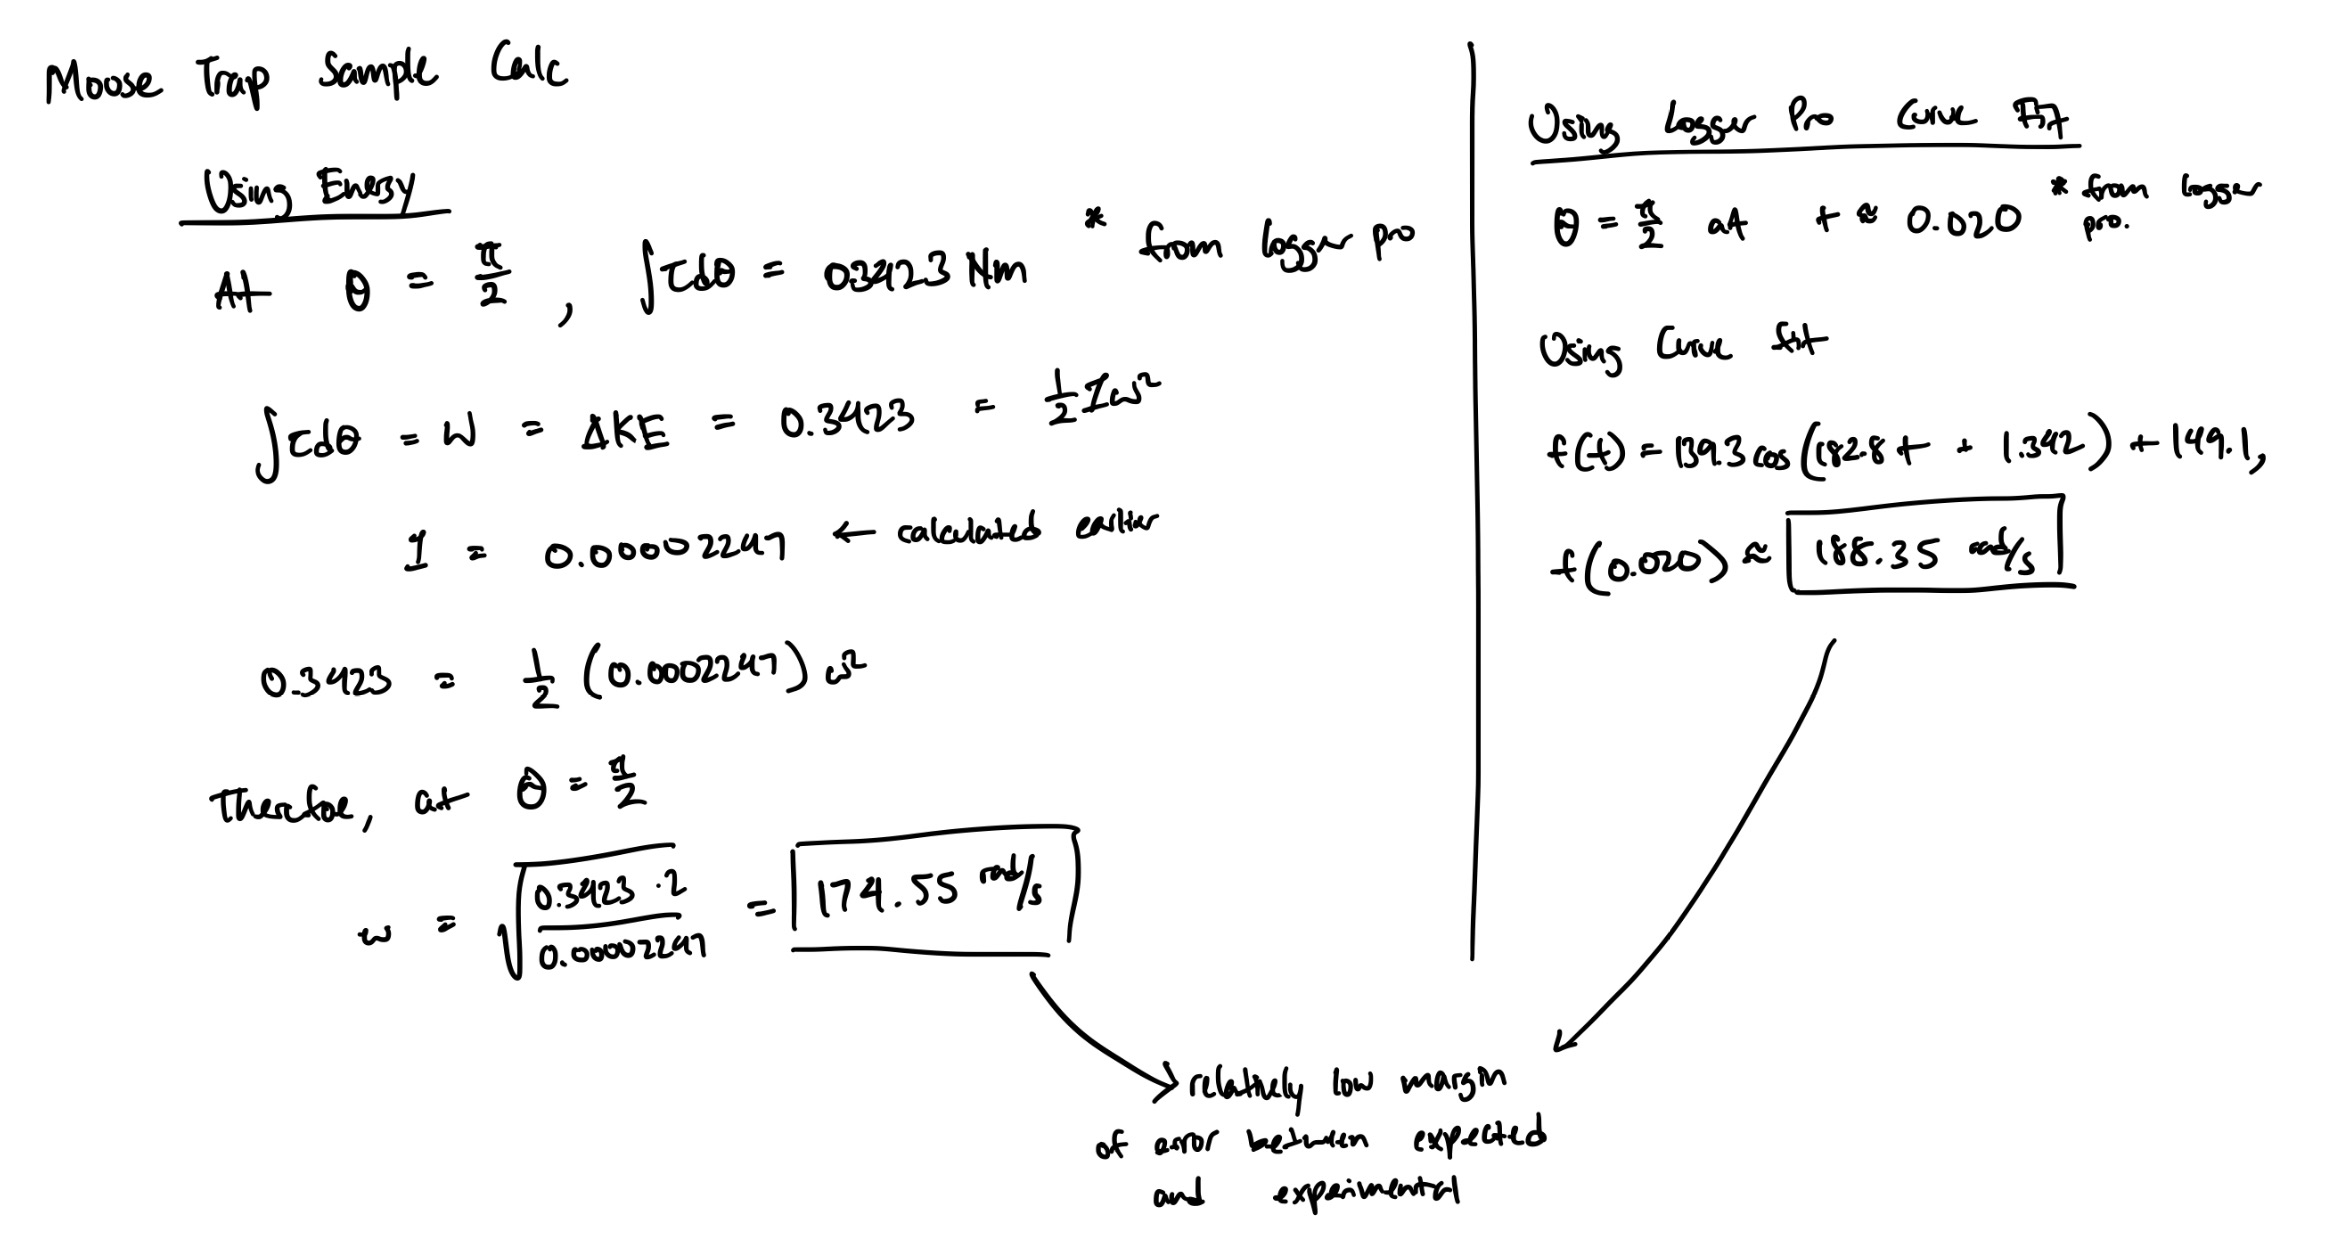 Mouse Trap Sample Calc
Using Energy
At θ = π/2 , ∫τdθ = 0.3423 Nm * from logger pro
∫τdθ = W = ΔKE = 0.3423 = 1/2 Iω²
I = 0.00002247 ← calculated earlier
0.3423 = 1/2 (0.0002247) ω²
Therefore, at θ = π/2
ω = √(0.3423 · 2 / 0.00002247) = 174.55 rad/s
Using Logger Pro Curve Fit
θ = π/2 at t ≈ 0.020 * from logger pro.
Using Curve fit
f(t) = 139.3 cos(182.8t + 1.342) + 149.1,
f(0.020) ≈ 188.35 rad/s
relatively low margin
of error between expected
and experimental